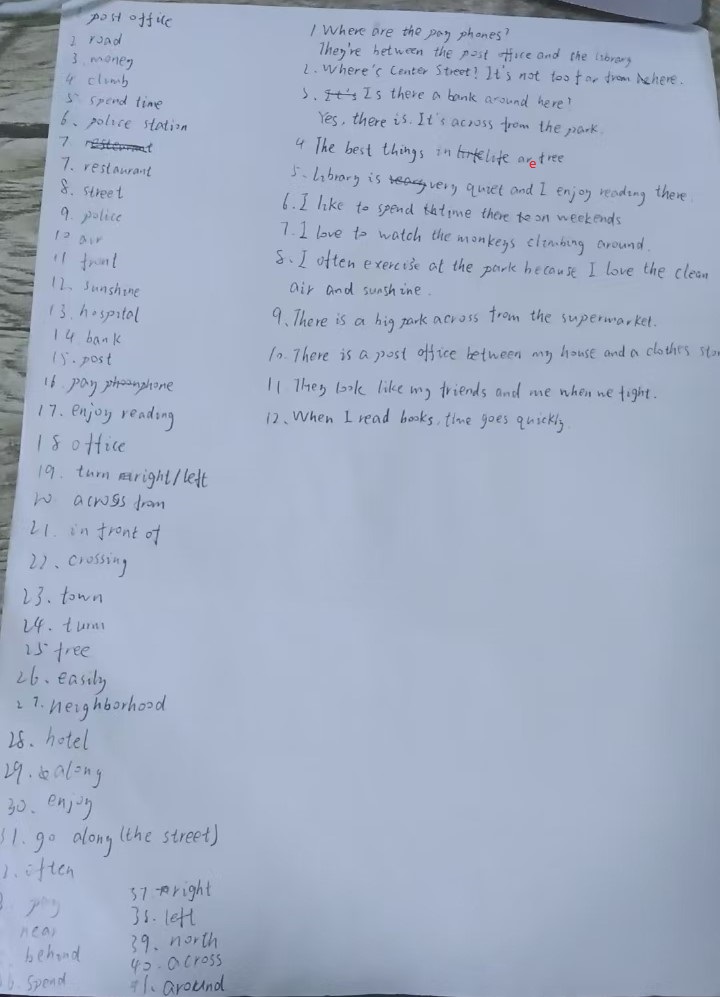 post office
2 road
3. money
4 climb
5. spend time
6. police station
7. restaurant
7. restaurant
8. street
9. police
10 air
11 front
12. sunshine
13. hospital
14 bank
15. post
16. pay phone
17. enjoy reading
18 office
19. turn right/left
20 across from
21. in front of
22、crossing
23. town
24. turn
25 free
26、easily
27. neighborhood
28. hotel
29. along
30. enjoy
31. go along (the street)
. often
pay
near
behind
spend
37. right
38. left
39、north
40. across
41. around
1 Where are the pay phones?
They're between the post office and the library
2. Where's Center Street? It's not too far from here.
3. It's Is there a bank around here?
Yes, there is. It's across from the park.
4 The best things in life are free
5. Library is very quiet and I enjoy reading there.
6. I like to spend time there on weekends
7. I love to watch the monkeys climbing around.
8、I often exercise at the park because I love the clean
air and sunshine.
9、There is a big park across from the supermarket.
10. There is a post office between my house and a clothes stor
11 They look like my friends and me when we fight.
12、When I read books, time goes quickly.